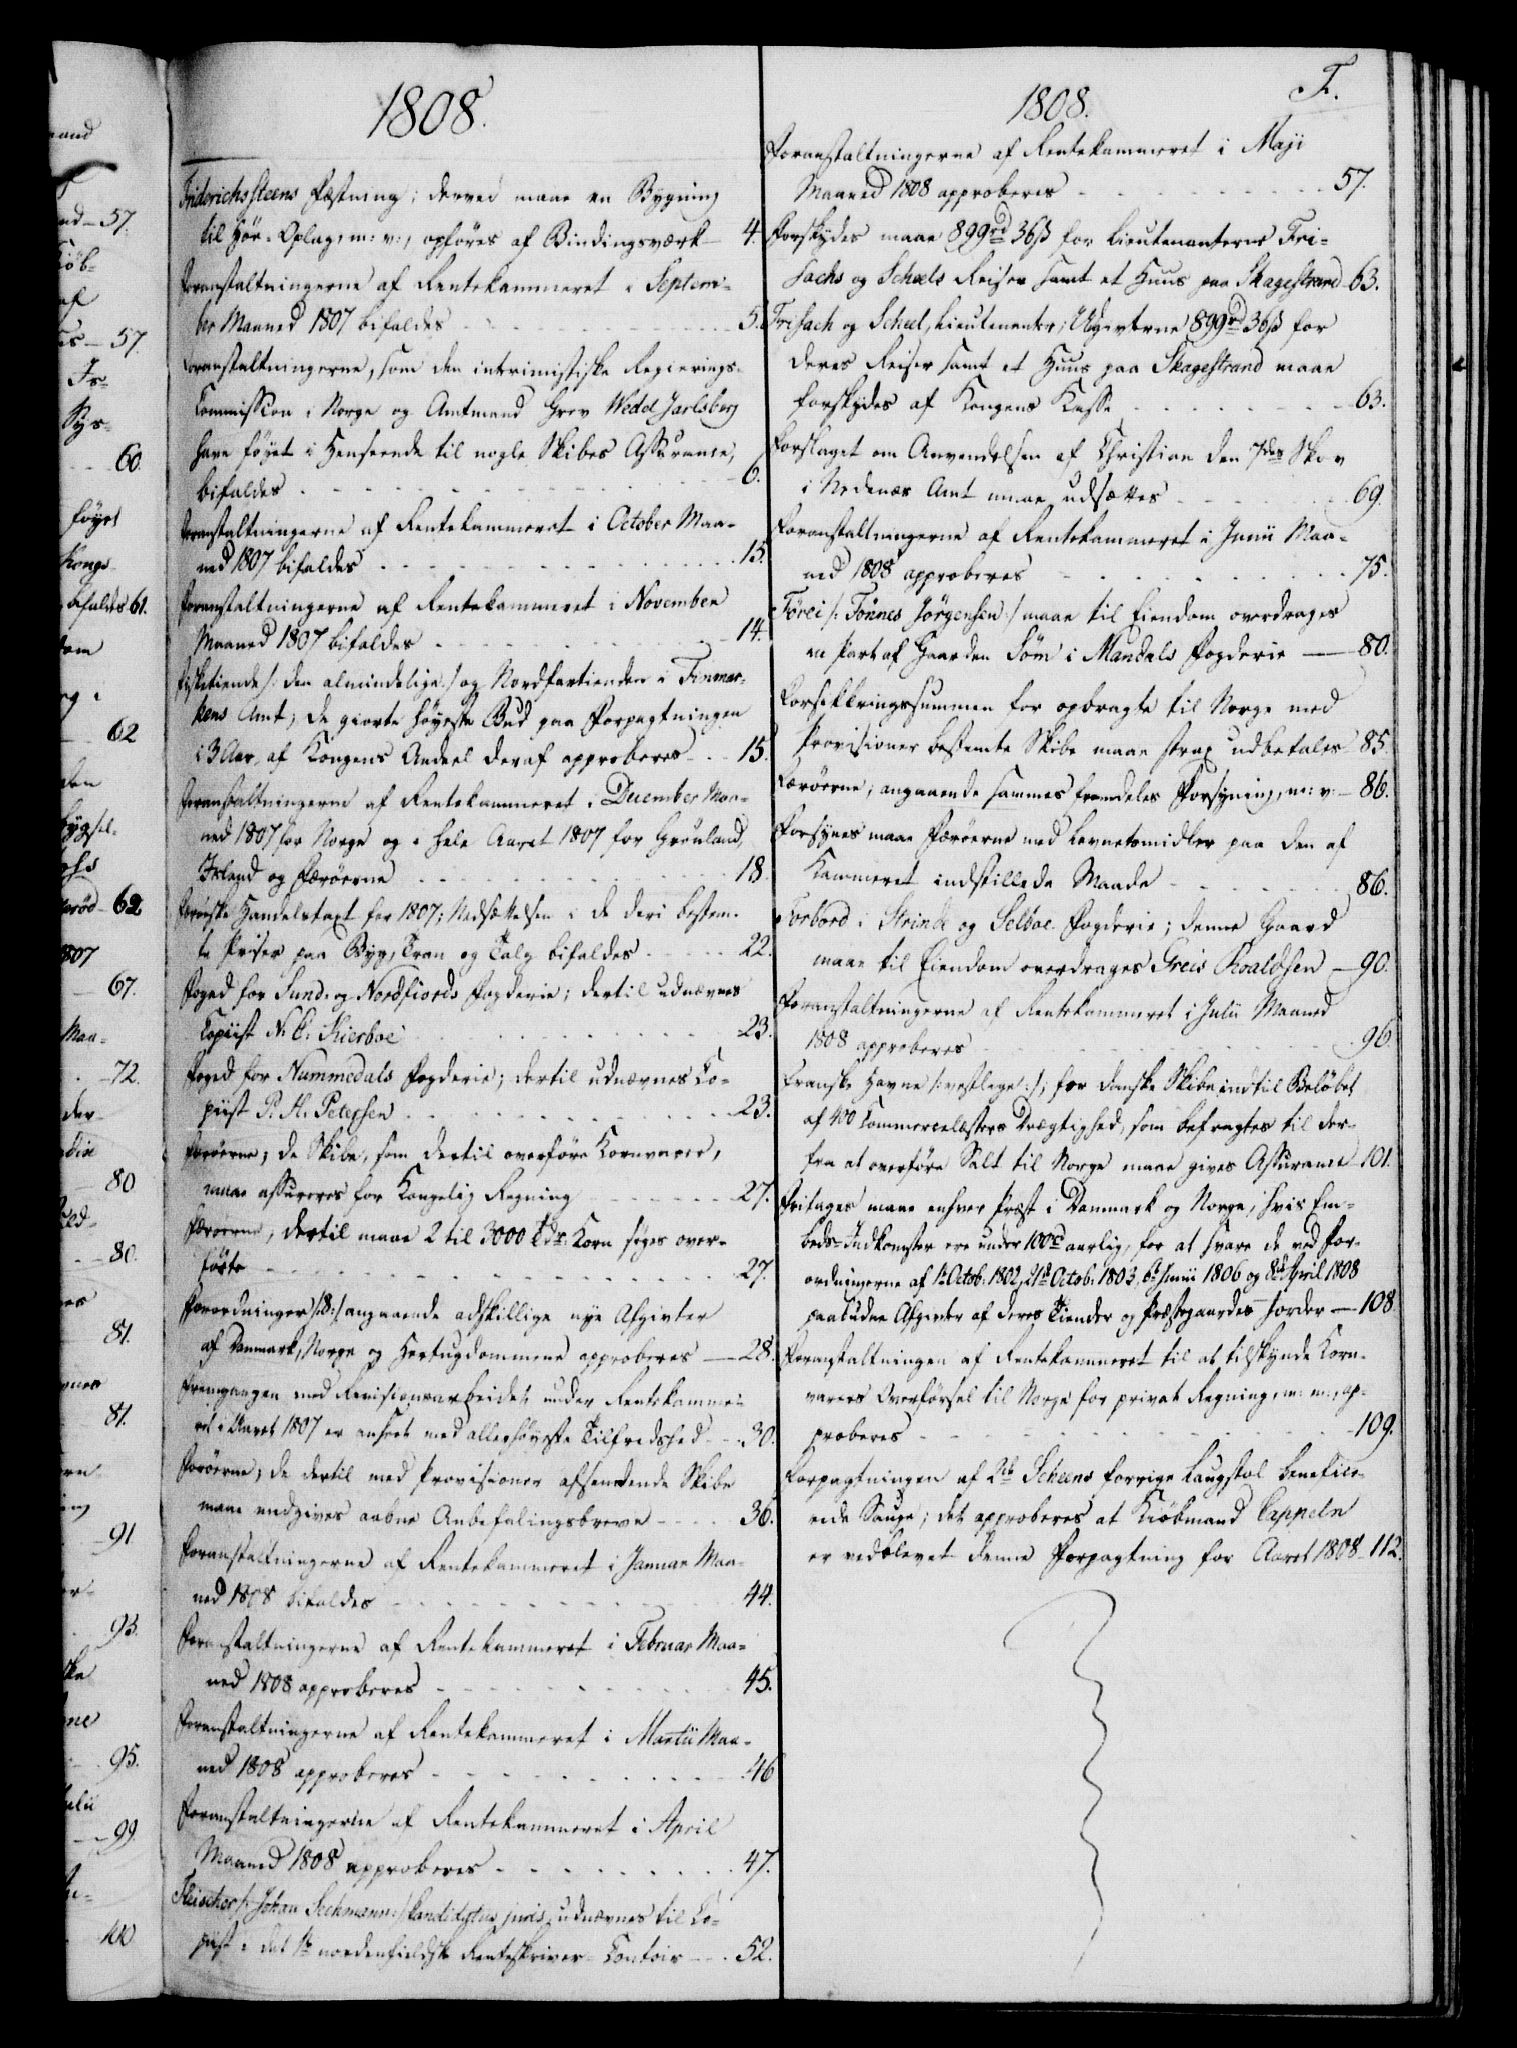 1808.
Friderichssteens Fæstning; derved maae en Bygning
til Höe-Oplag, m: v:, opföres af Bindingsværk 4.
Foranstaltningerne af Rentekammeret i Septem-
ber Maaned 1807 bifaldes 5.
Foranstaltningerne, som den intrimistiske Regierings-
Commission i Norge og Amtmand Grev Wedel Jarlsberg
have föyet i Henseende til nogle Skibes Assurance,
bifaldes 6.
Foranstaltningerne af Rentekammeret i October Maa-
ned 1807 bifaldes 13.
Foranstaltningerne af Rentekammeret i November
Maaned 1807 bifaldes 14.
Fisketiende /: den almindelige :/ og Nordfartienden i Finmar-
kens Amt; de giorte höyeste Bud paa Forpagtningen
i 3 Aar, af Kongens Andeel deraf approberes 15.
Foranstaltningerne af Rentekammeret i December Maa-
ned 1807 for Norge og i hele Aaret 1807 for Grönland,
Island og Færöerne 18.
Færöiske Handelstaxt for 1807; Nedsættelsen i de deri bestem-
te Priser paa Byg, Tran og Talg bifaldes 22.
Foged for Sund- og Nordfiords Fogderie; dertil udnævnes
Copiist N. C. Skierboe 23.
Foged for Nummedals Fogderie; dertil udnævnes Co-
piist P. H. Petersen 23.
Færöerne; de Skibe, som dertil overföre Kornvarer,
maae assureres for Kongelig Regning 27.
Færöerne; dertil maae 2 til 3000 Tdr: Korn söges over-
förte 27.
Forordninger /: 8 :/ angaaende adskillige nye Afgivter
af Danmark, Norge og Hertugdommene approberes 28.
Fremgangen med Revisionsarbeidet under Rentekamme-
ret i Aaret 1807 er anseet med allerhöyeste Tilfredshed 30.
Færöerne; de dertil med Provisioner afsendende Skibe
maae medgives aabne Anbefalingsbreve 36.
Foranstaltningerne af Rentekammeret i Januar Maa-
ned 1808 bifaldes 44.
Foranstaltningerne af Rentekammeret i Februar Maa-
ned 1808 approberes 45.
Foranstaltningerne af Rentekammeret i Martii Maa-
ned 1808 approberes 46
Foranstaltningerne af Rentekammeret i April
Maaned 1808 approberes 47.
Fleischer /: Johan Sechmann :/ Kandidatus juris, udnævnes til Co-
piist i det 1te nordenfieldske Renteskriver-Contoir 52.
1808. F.
Foranstaltningerne af Rentekammeret i Maji
Maaned 1808 approberes 57.
Forskydes maae 899rd 36ß for Lieutenanterne Fri-
sachs og Scheels Reiser samt et Huus paa Skagestrand 63.
Frisach og Scheel, Lieutenanter; Udgivterne 899rd 36ß for
deres Reiser samt et Huus paa Skagestrand maae
forskydes af Kongens Kasse 63.
Forslaget om Anvendelsen af Christian den 7des Skov
i Nedenæs Amt maae udsættes 69.
Foranstaltningerne af Rentekammeret i Junii Maa-
ned 1808 approberes 75.
Förei /: Tönnes Jörgensen :/ maae til Eiendom overdrages
en Part af Gaarden Söm i Mandals Fogderie 80.
Forsikkringssummen for opbragte til Norge med
Provisioner bestemte Skibe maae strax udbetales 85.
Færöerne; angaaende sammes fremdeles Forsyning, m: v: 86.
Forsynes maae Færöerne med Levnetsmidler paa den af
Kammeret indstillede Maade 86.
Forbord i Strinde og Selboe Fogderie; denne Gaard
maae til Eiendom overdrages Greis Roaldsen 90.
Foranstaltningerne af Rentekammeret i Julii Maaned
1808 approberes 96.
Franske Havne /: vestlige :/; for danske Skibe indtil Belöbet
af 400 Commercelæsters Drægtighed, som befragtes til der-
fra at overföre Salt til Norge maae gives Assurance 101.
Fritages maae enhver Præst i Danmark og Norge, hvis Em-
beds-Indkomster ere under 100rd aarlig, for at svare de ved For-
ordningerne af 1te Octob: 1802, 21de Octob: 1803, 6te Junii 1806 og 8de April 1808
paabudne Afgivter af deres Tiender og Præstegaardes Jorder 108.
Foranstaltningen af Rentekammeret til at tilskynde Korn-
varers Overförsel til Norge for privat Regning, m: m:, ap-
proberes 109.
Forpagtningen af Scheens forrige Laugstol benefice-
rede Sauge; det approberes at Kiöbmand Cappeln
er vedblevet denne Forpagtning for Aaret 1808 112.